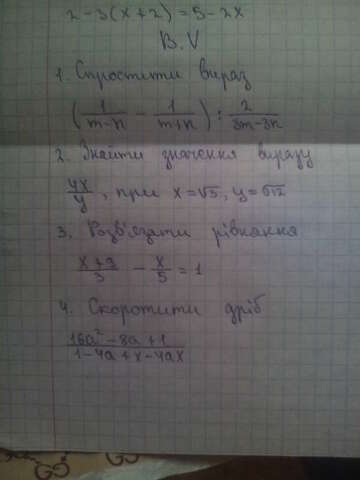 2-3(x+2)=5-2x
В.V
1. Спростити вираз
(1/(m-n) - 1/(m+n)) : 2/(3m-3n)
2. Знайти значення виразу
4x/y, при x=√3, y=√12
3. Розв'язати рівняння
(x+3)/3 - x/5 = 1
4. Скоротити дріб
(16a²-8a+1)/(1-4a+x-4ax)